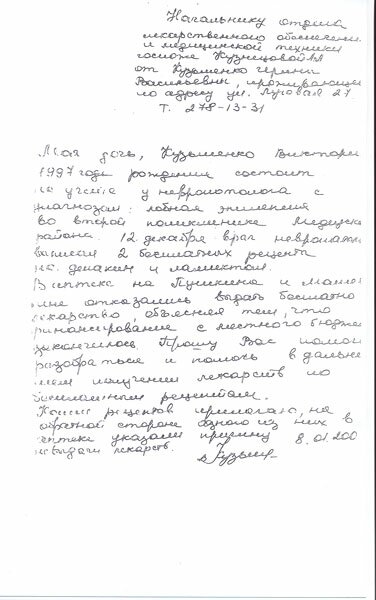 Начальнику отдела
лекарственного обеспечени
и медицинской техники
госпоже Кузнецовой
от Кузьменко
Васильевны, проживающе
по адресу ул. Луговая 27
т. 278-13-31
Моя дочь, Кузьменко Виктори
1997 года рождения состоит
на учете у невропотолога с
диагнозом: лобная эпилепсия
во второй поликлинике
района. 12 декабря врач невропатол
выписал 2 бесплатных рецепта
на: депакин и ламиктал.
В аптеке на Пушкина и
мне отказались выдать бесплатно
лекарство, объясняя тем, что
финансирование с местного бюдже
закончилось. Прошу Вас помоч
разобраться и помочь в дальне
шем получении лекарств по
бесплатным рецептам.
Копии рецептов прилагаю, на
обратной стороне одного из них в
аптеке указали причину 8.01.200
невыдачи лекарств.